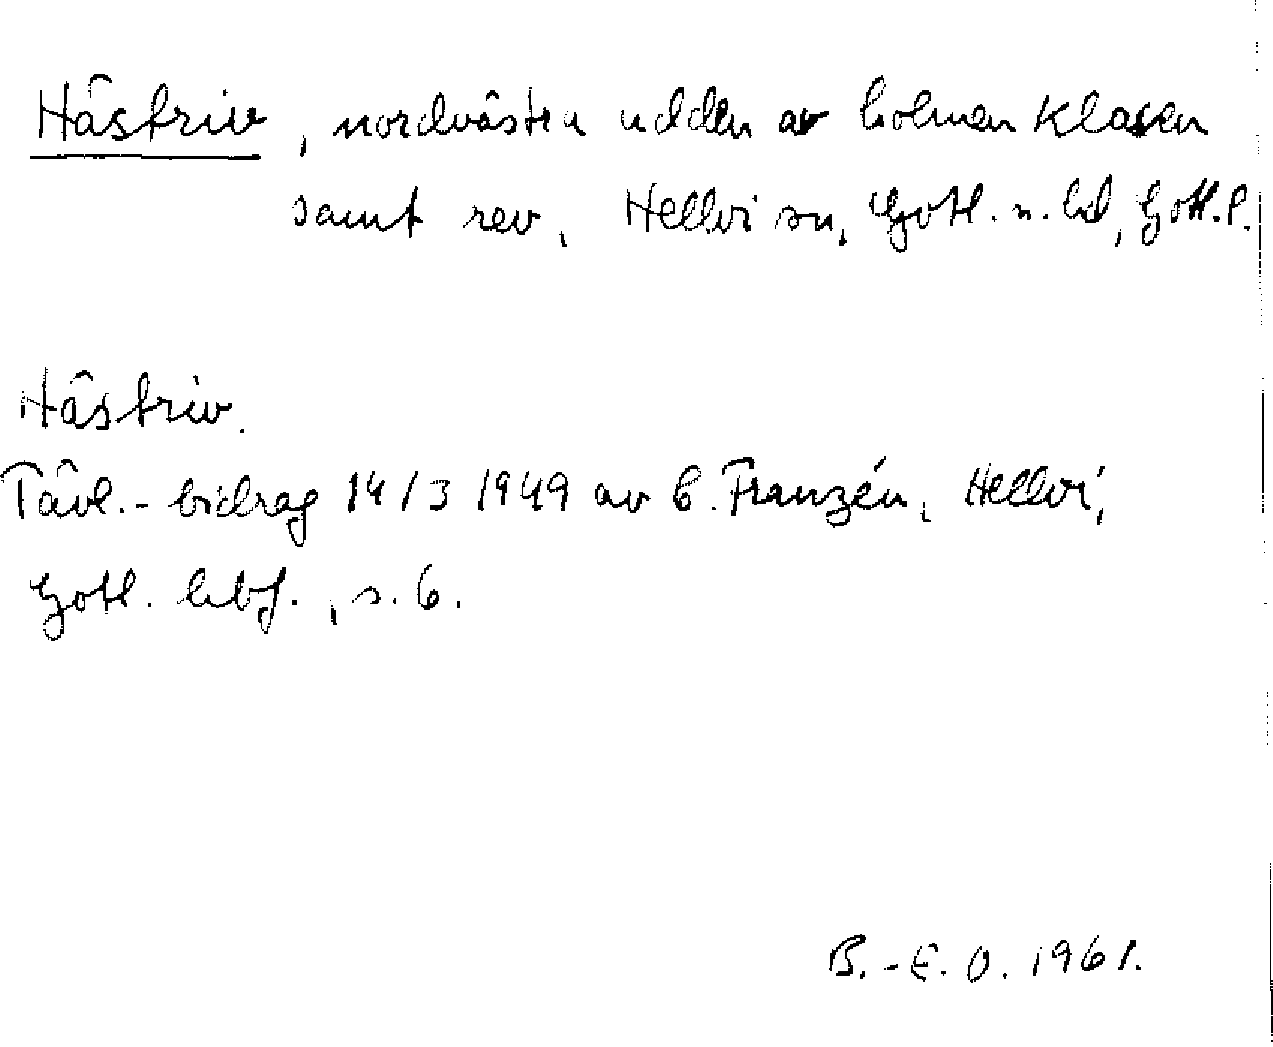 Hästriv, nordvästra udden av holmen Klasen
samt rev, Hellvi sn, Gotl. n. hd, Gotl. l.
Hästriv.
Tävl.-bidrag 14/3 1949 av B. Franzén, Hellvi,
Gotl. hbf., s. 6.
B.-E. O. 1961.